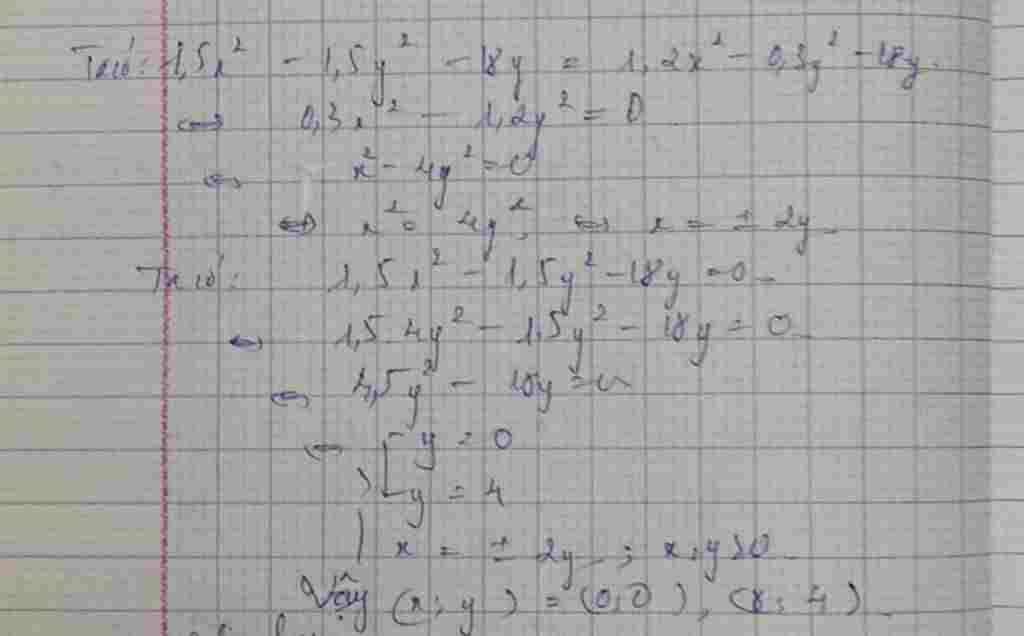 Ta có: 1,5x² - 1,5y² - 18y = 1,2x² - 0,3y² - 18y.
⇔ 0,3x² - 1,2y² = 0
⇔ x² - 4y² = 0
⇔ x² = 4y² ⇔ x = ± 2y
Ta có: 1,5x² - 1,5y² - 18y = 0
⇔ 1,5.4y² - 1,5y² - 18y = 0
⇔ 4,5y² - 18y = 0
⇔ [ y = 0
y = 4
x = ± 2y ; x, y ≥ 0
Vậy (x; y) = (0,0), (8; 4)